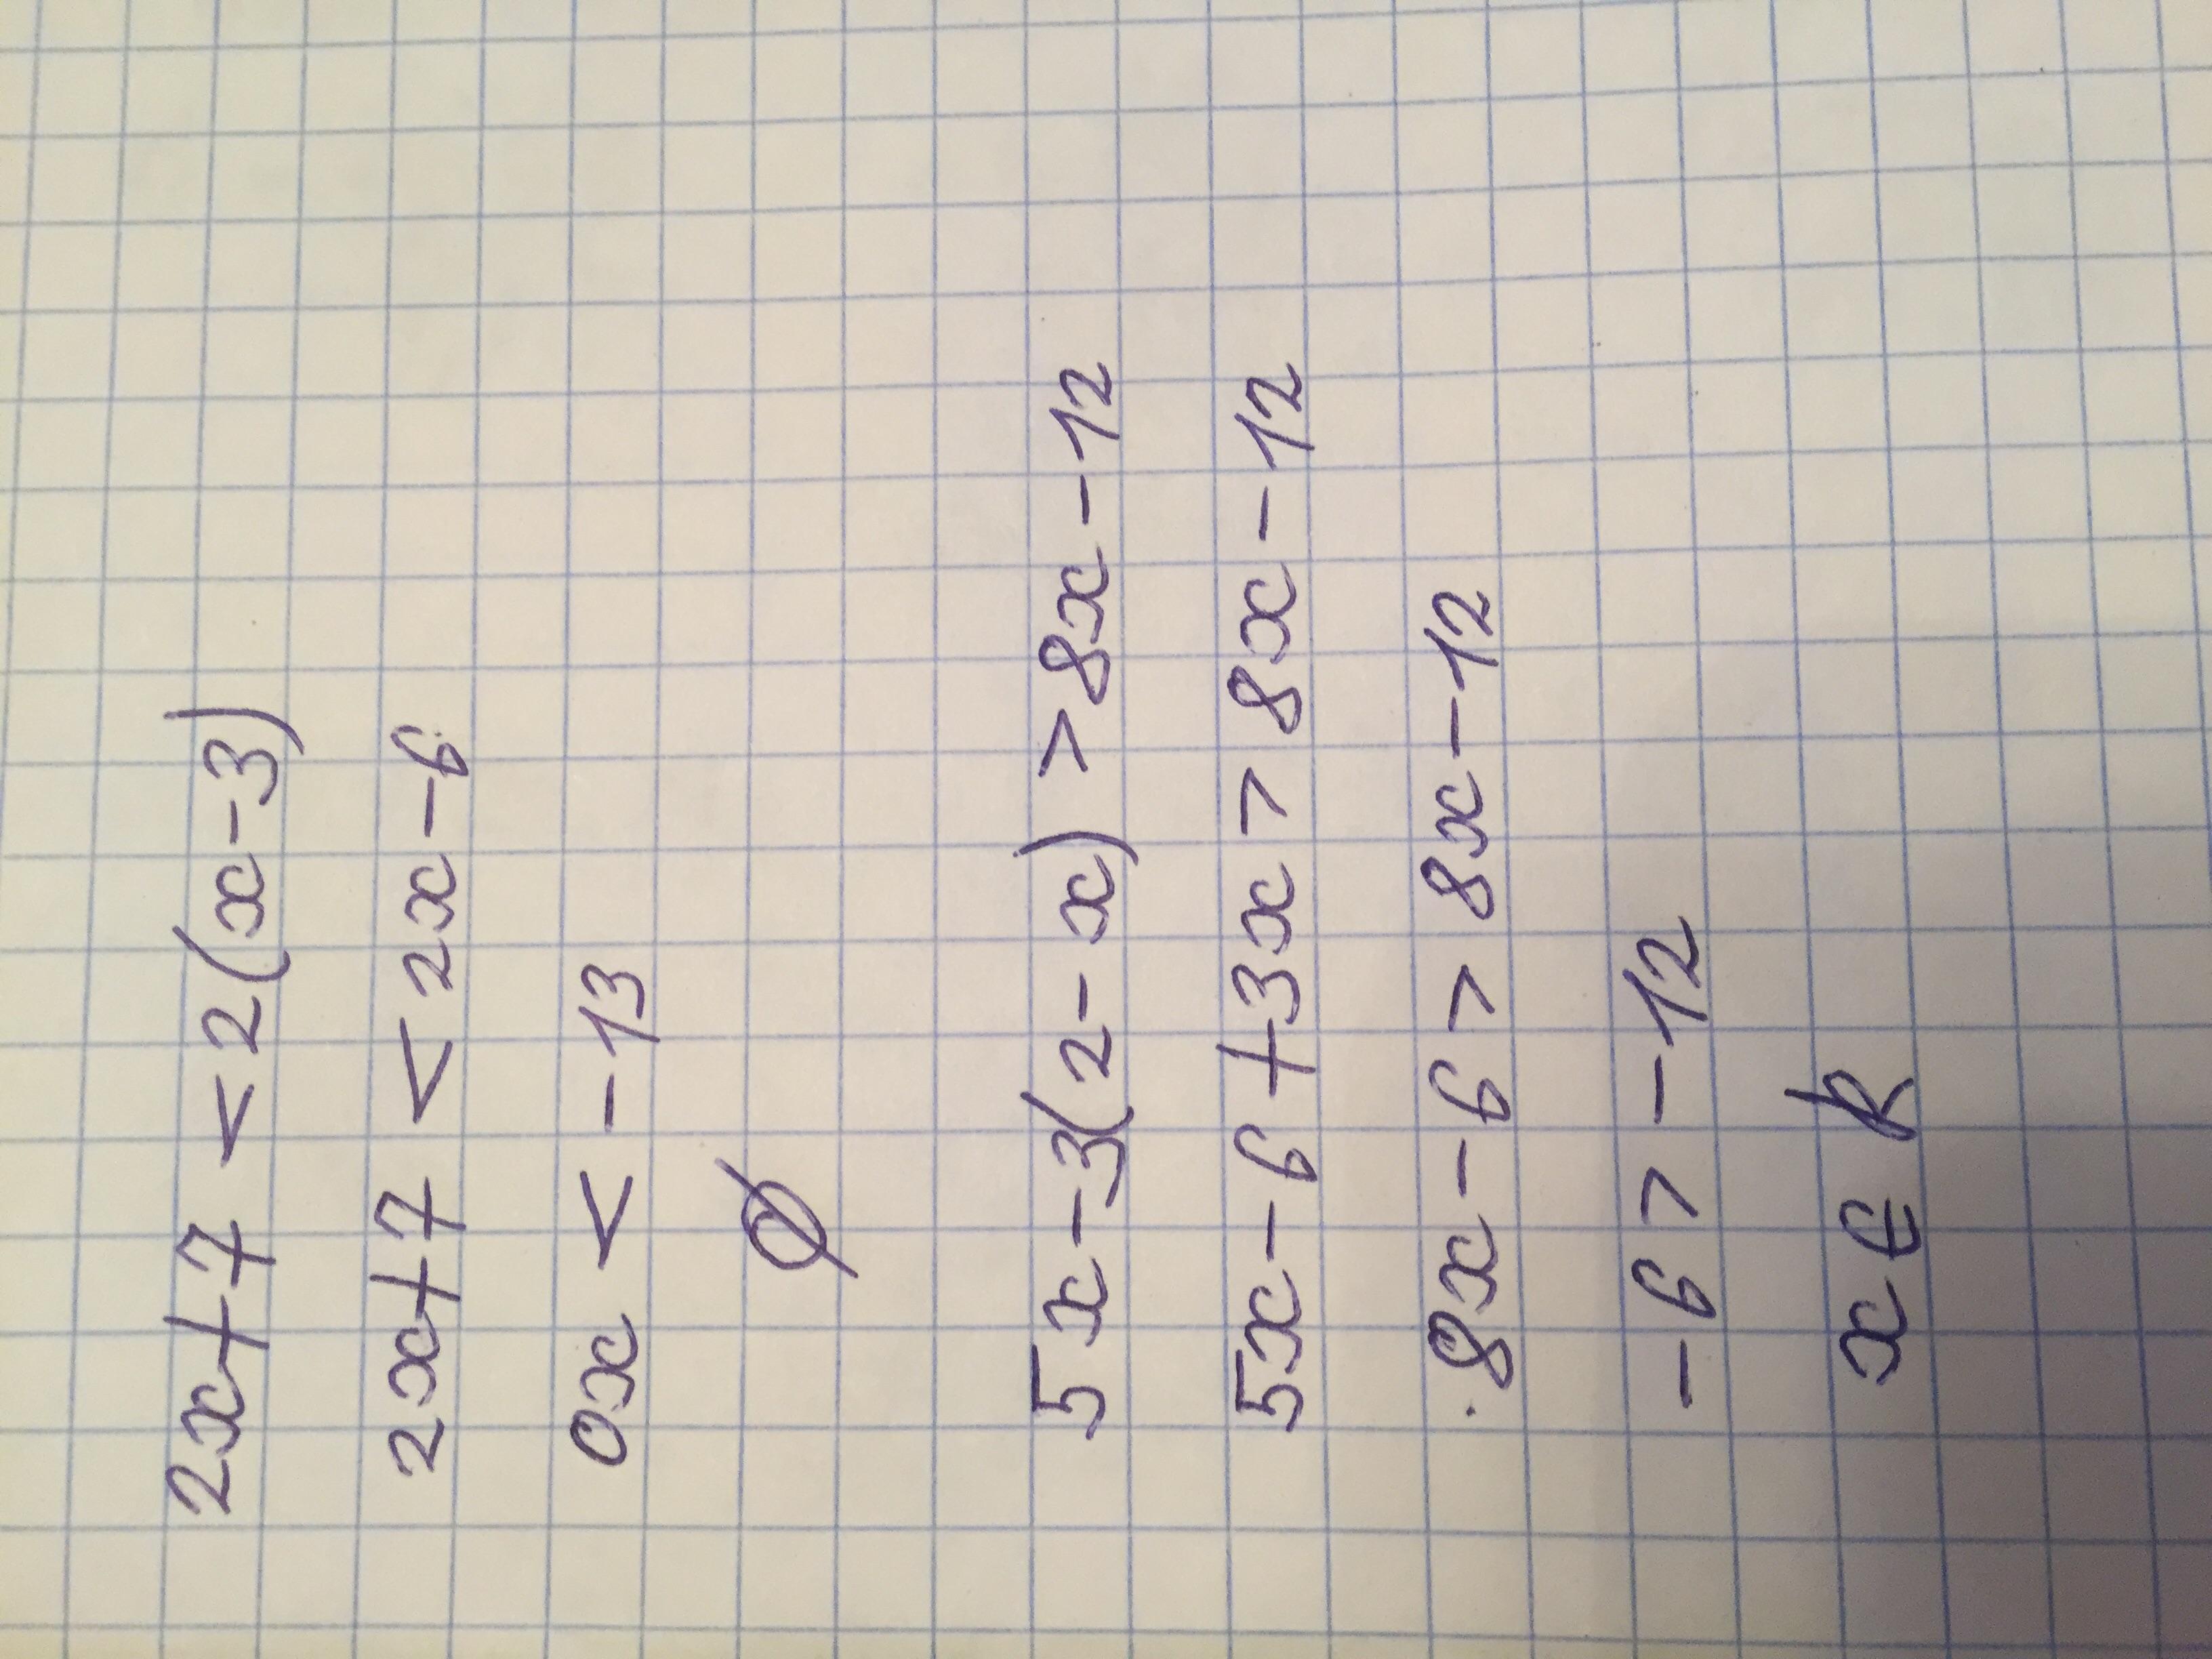 2x+7 < 2(x-3)
2x+7 < 2x-6
0x < -13
∅
5x-3(2-x) > 8x-12
5x-6+3x > 8x-12
8x-6 > 8x-12
-6 > -12
x ∈ R